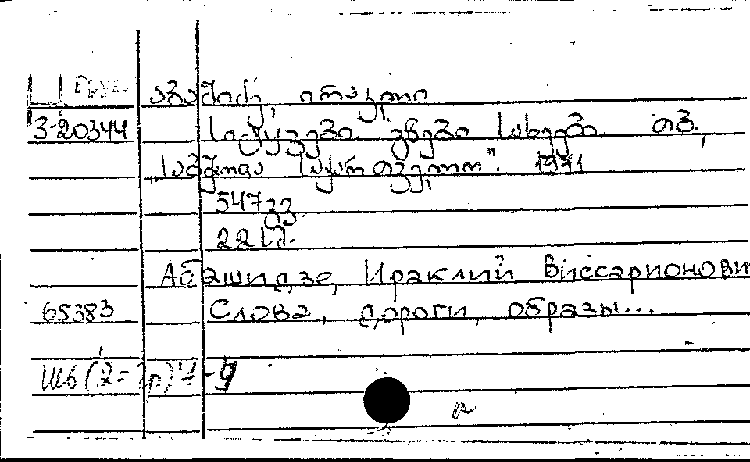 Груз. აბაშიძე, ირაკლი
3-20344 სიტყვები გზები სახეები თბ.,
„საბჭოთა საქართველო". 1971
547 გვ.
22 სმ.
Абашидзе, Ираклий Виссарионович
65383 Слова, дороги, образы...